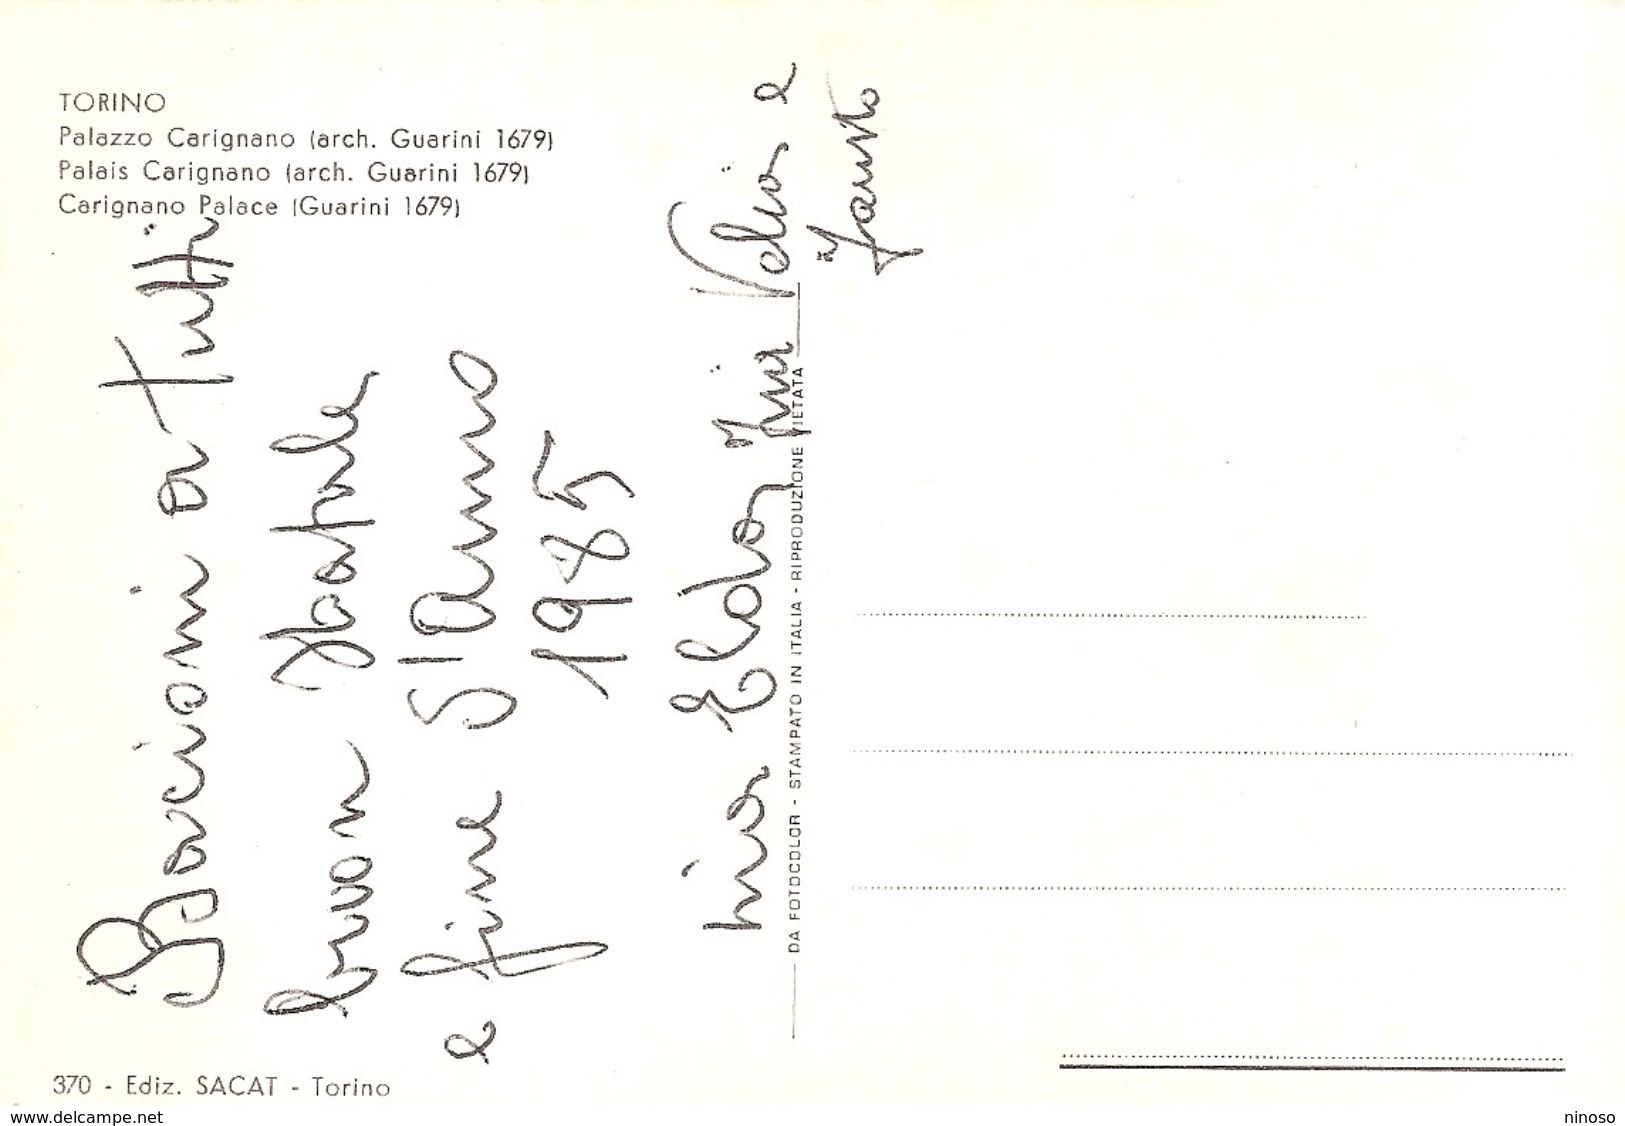 TORINO
Palazzo Carignano (arch. Guarini 1679)
Palais Carignano (arch. Guarini 1679)
Carignano Palace (Guarini 1679)
Bacioni a Tutti
buon Natale
e fine d'Anno
1985
Elda Livia Velia e
Fausto
DA FOTOCOLOR - STAMPATO IN ITALIA - RIPRODUZIONE VIETATA
370 - Ediz. SACAT - Torino
www.delcampe.net
ninoso